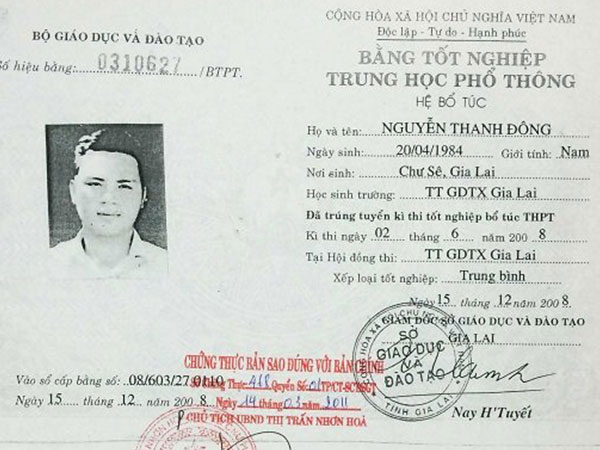 BỘ GIÁO DỤC VÀ ĐÀO TẠO
Số hiệu bằng: 0310627 /BTPT.
CỘNG HÒA XÃ HỘI CHỦ NGHĨA VIỆT NAM
Độc lập - Tự do - Hạnh phúc
BẰNG TỐT NGHIỆP
TRUNG HỌC PHỔ THÔNG
HỆ BỔ TÚC
Họ và tên: NGUYỄN THANH ĐÔNG
Ngày sinh: 20/04/1984 Giới tính: Nam
Nơi sinh: Chư Sê, Gia Lai
Học sinh trường: TT GDTX Gia Lai
Đã trúng tuyển kì thi tốt nghiệp bổ túc THPT
Kì thi ngày 02 tháng 6 năm 200 8
Tại Hội đồng thi: TT GDTX Gia Lai
Xếp loại tốt nghiệp: Trung bình
Ngày 15 tháng 12 năm 200 8
GIÁM ĐỐC SỞ GIÁO DỤC VÀ ĐÀO TẠO
GIA LAI
SỞ
GIÁO DỤC
VÀ
ĐÀO TẠO
TỈNH GIA LAI
Nay H'Tuyết
Vào sổ cấp bằng số: 08/603/27.0110
Ngày 15 tháng 12 năm 200 8
CHỨNG THỰC BẢN SAO ĐÚNG VỚI BẢN CHÍNH
Quyển Số: 01 TPCT-SCT/SGT
Ngày 14 tháng 03 năm 2011
CHỦ TỊCH UBND THỊ TRẤN NHƠN HOÀ